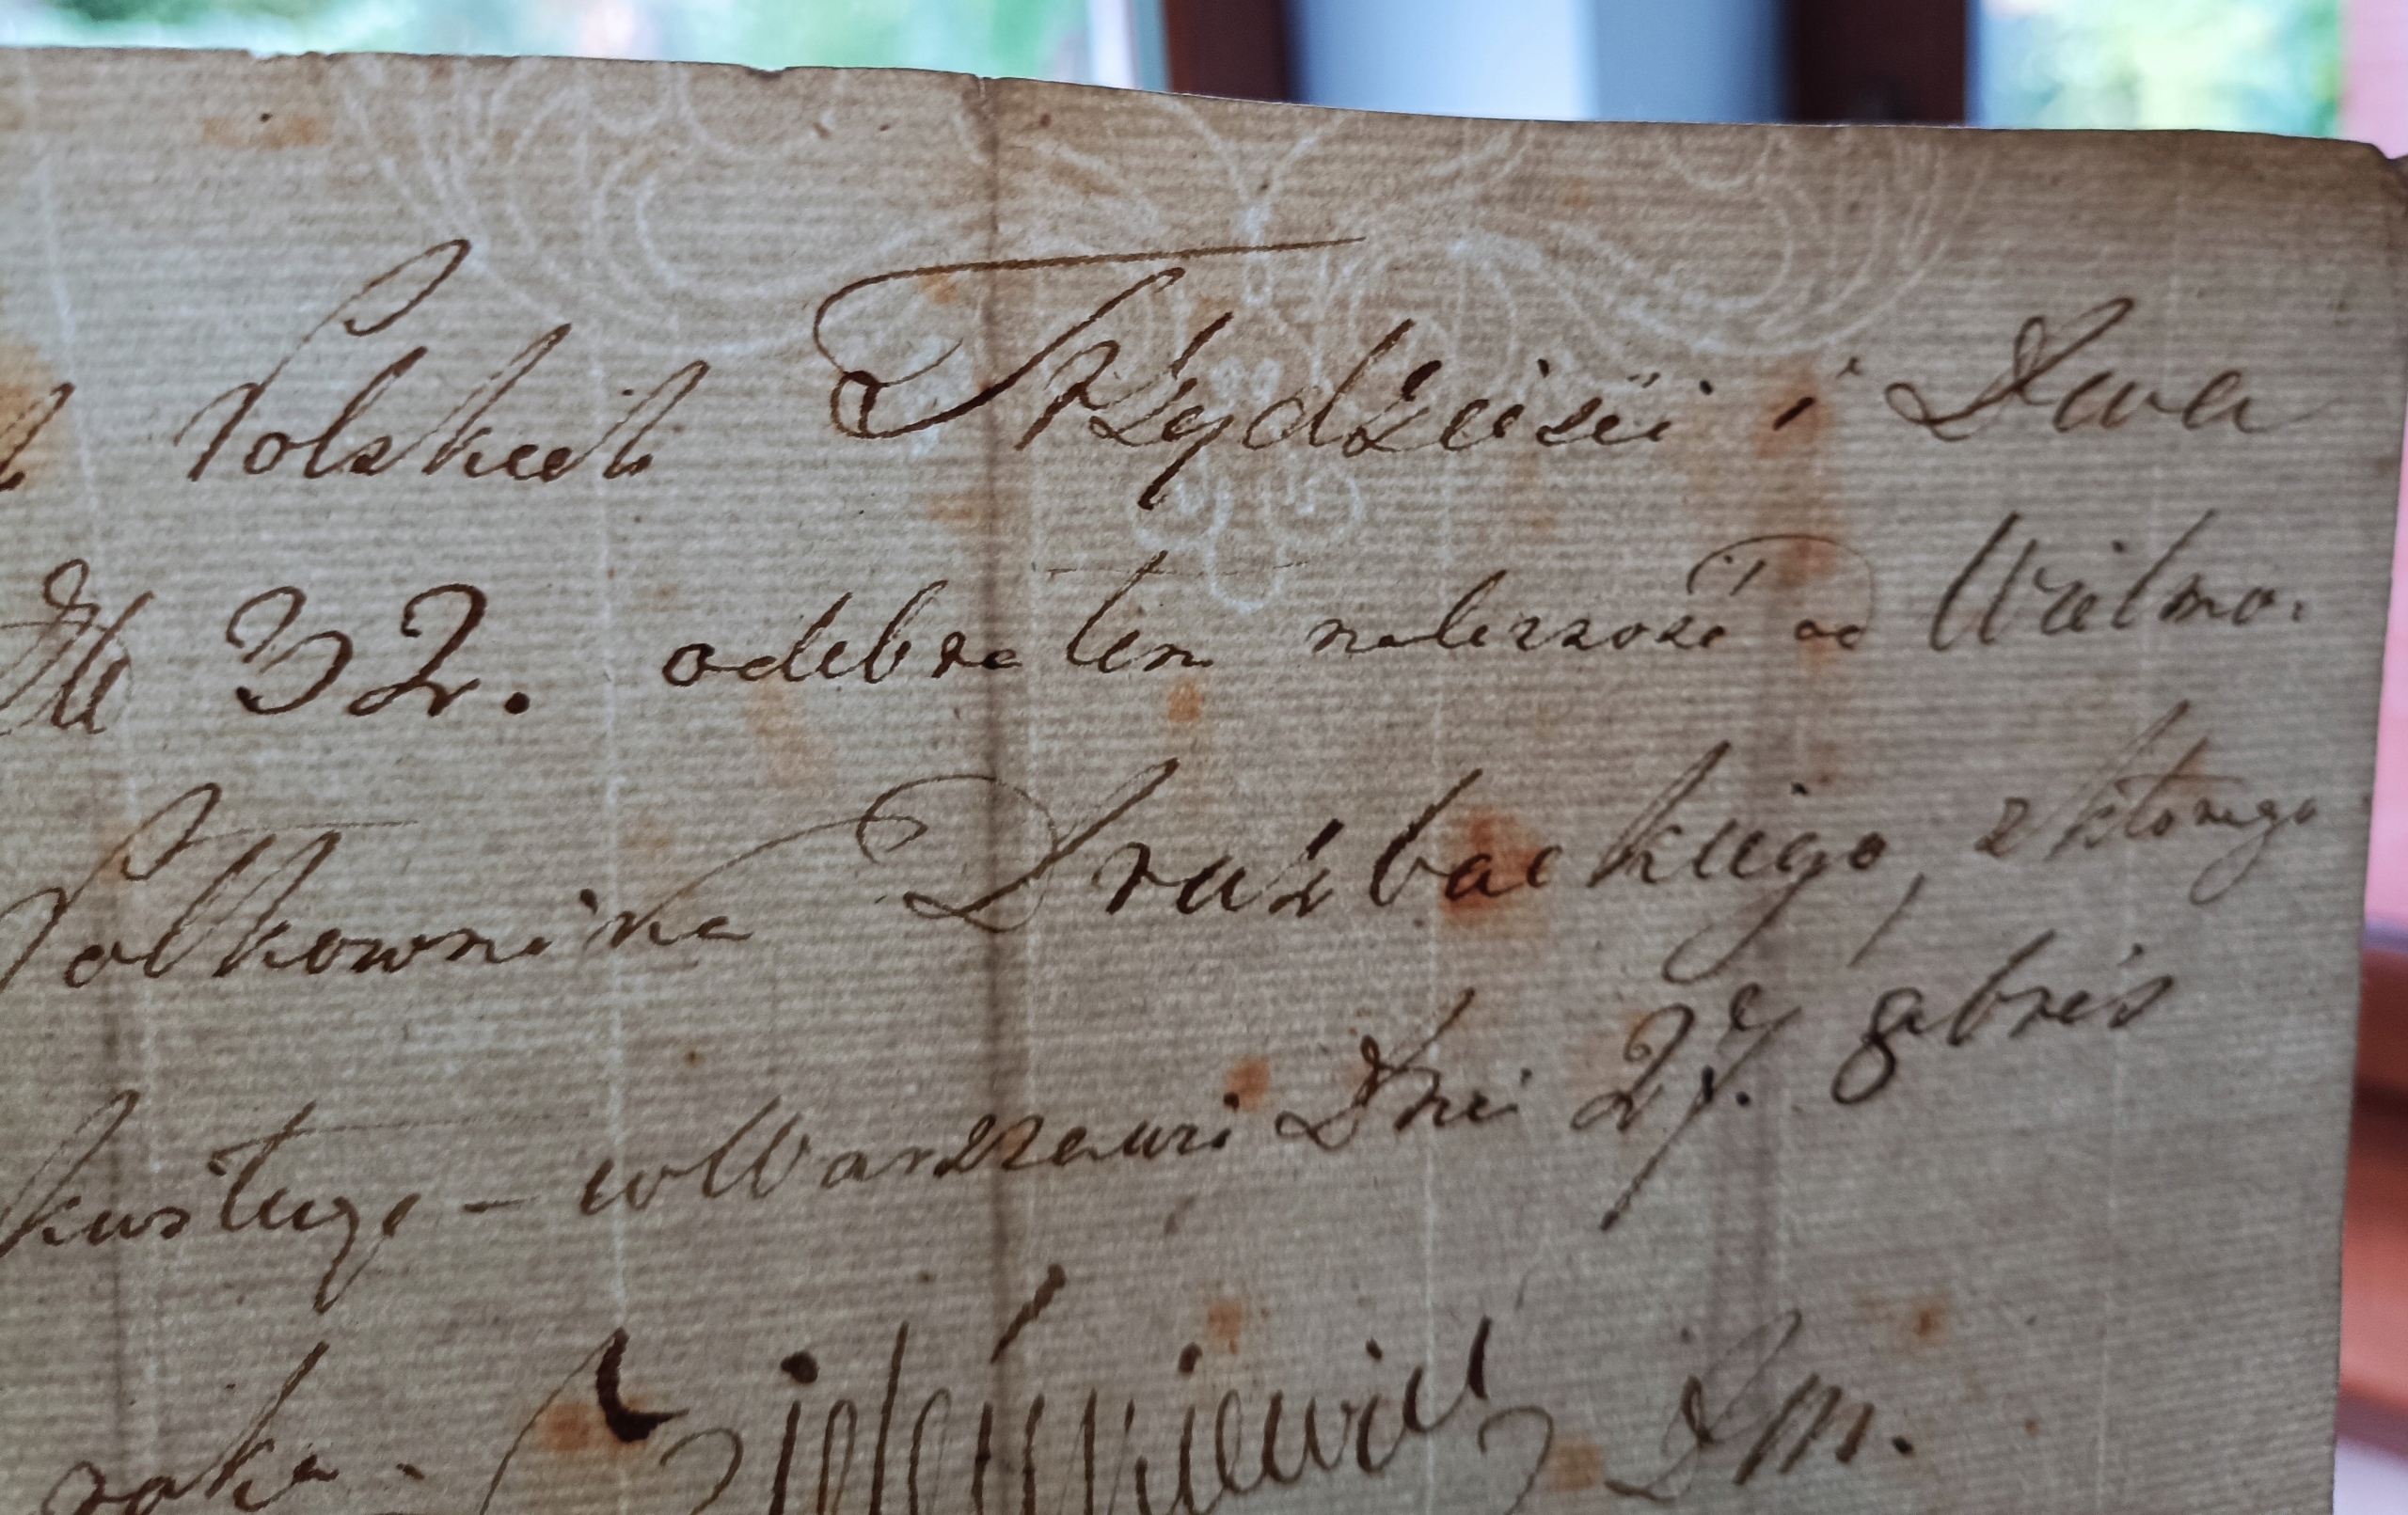 Polskich Trzydzieści i Dwa
Zł 32. odebrałem należność od Wielmo:
Połkownika Drużbackiego, z którego
kwituję – w Warszawie Dnia 27. 8bris
roku.